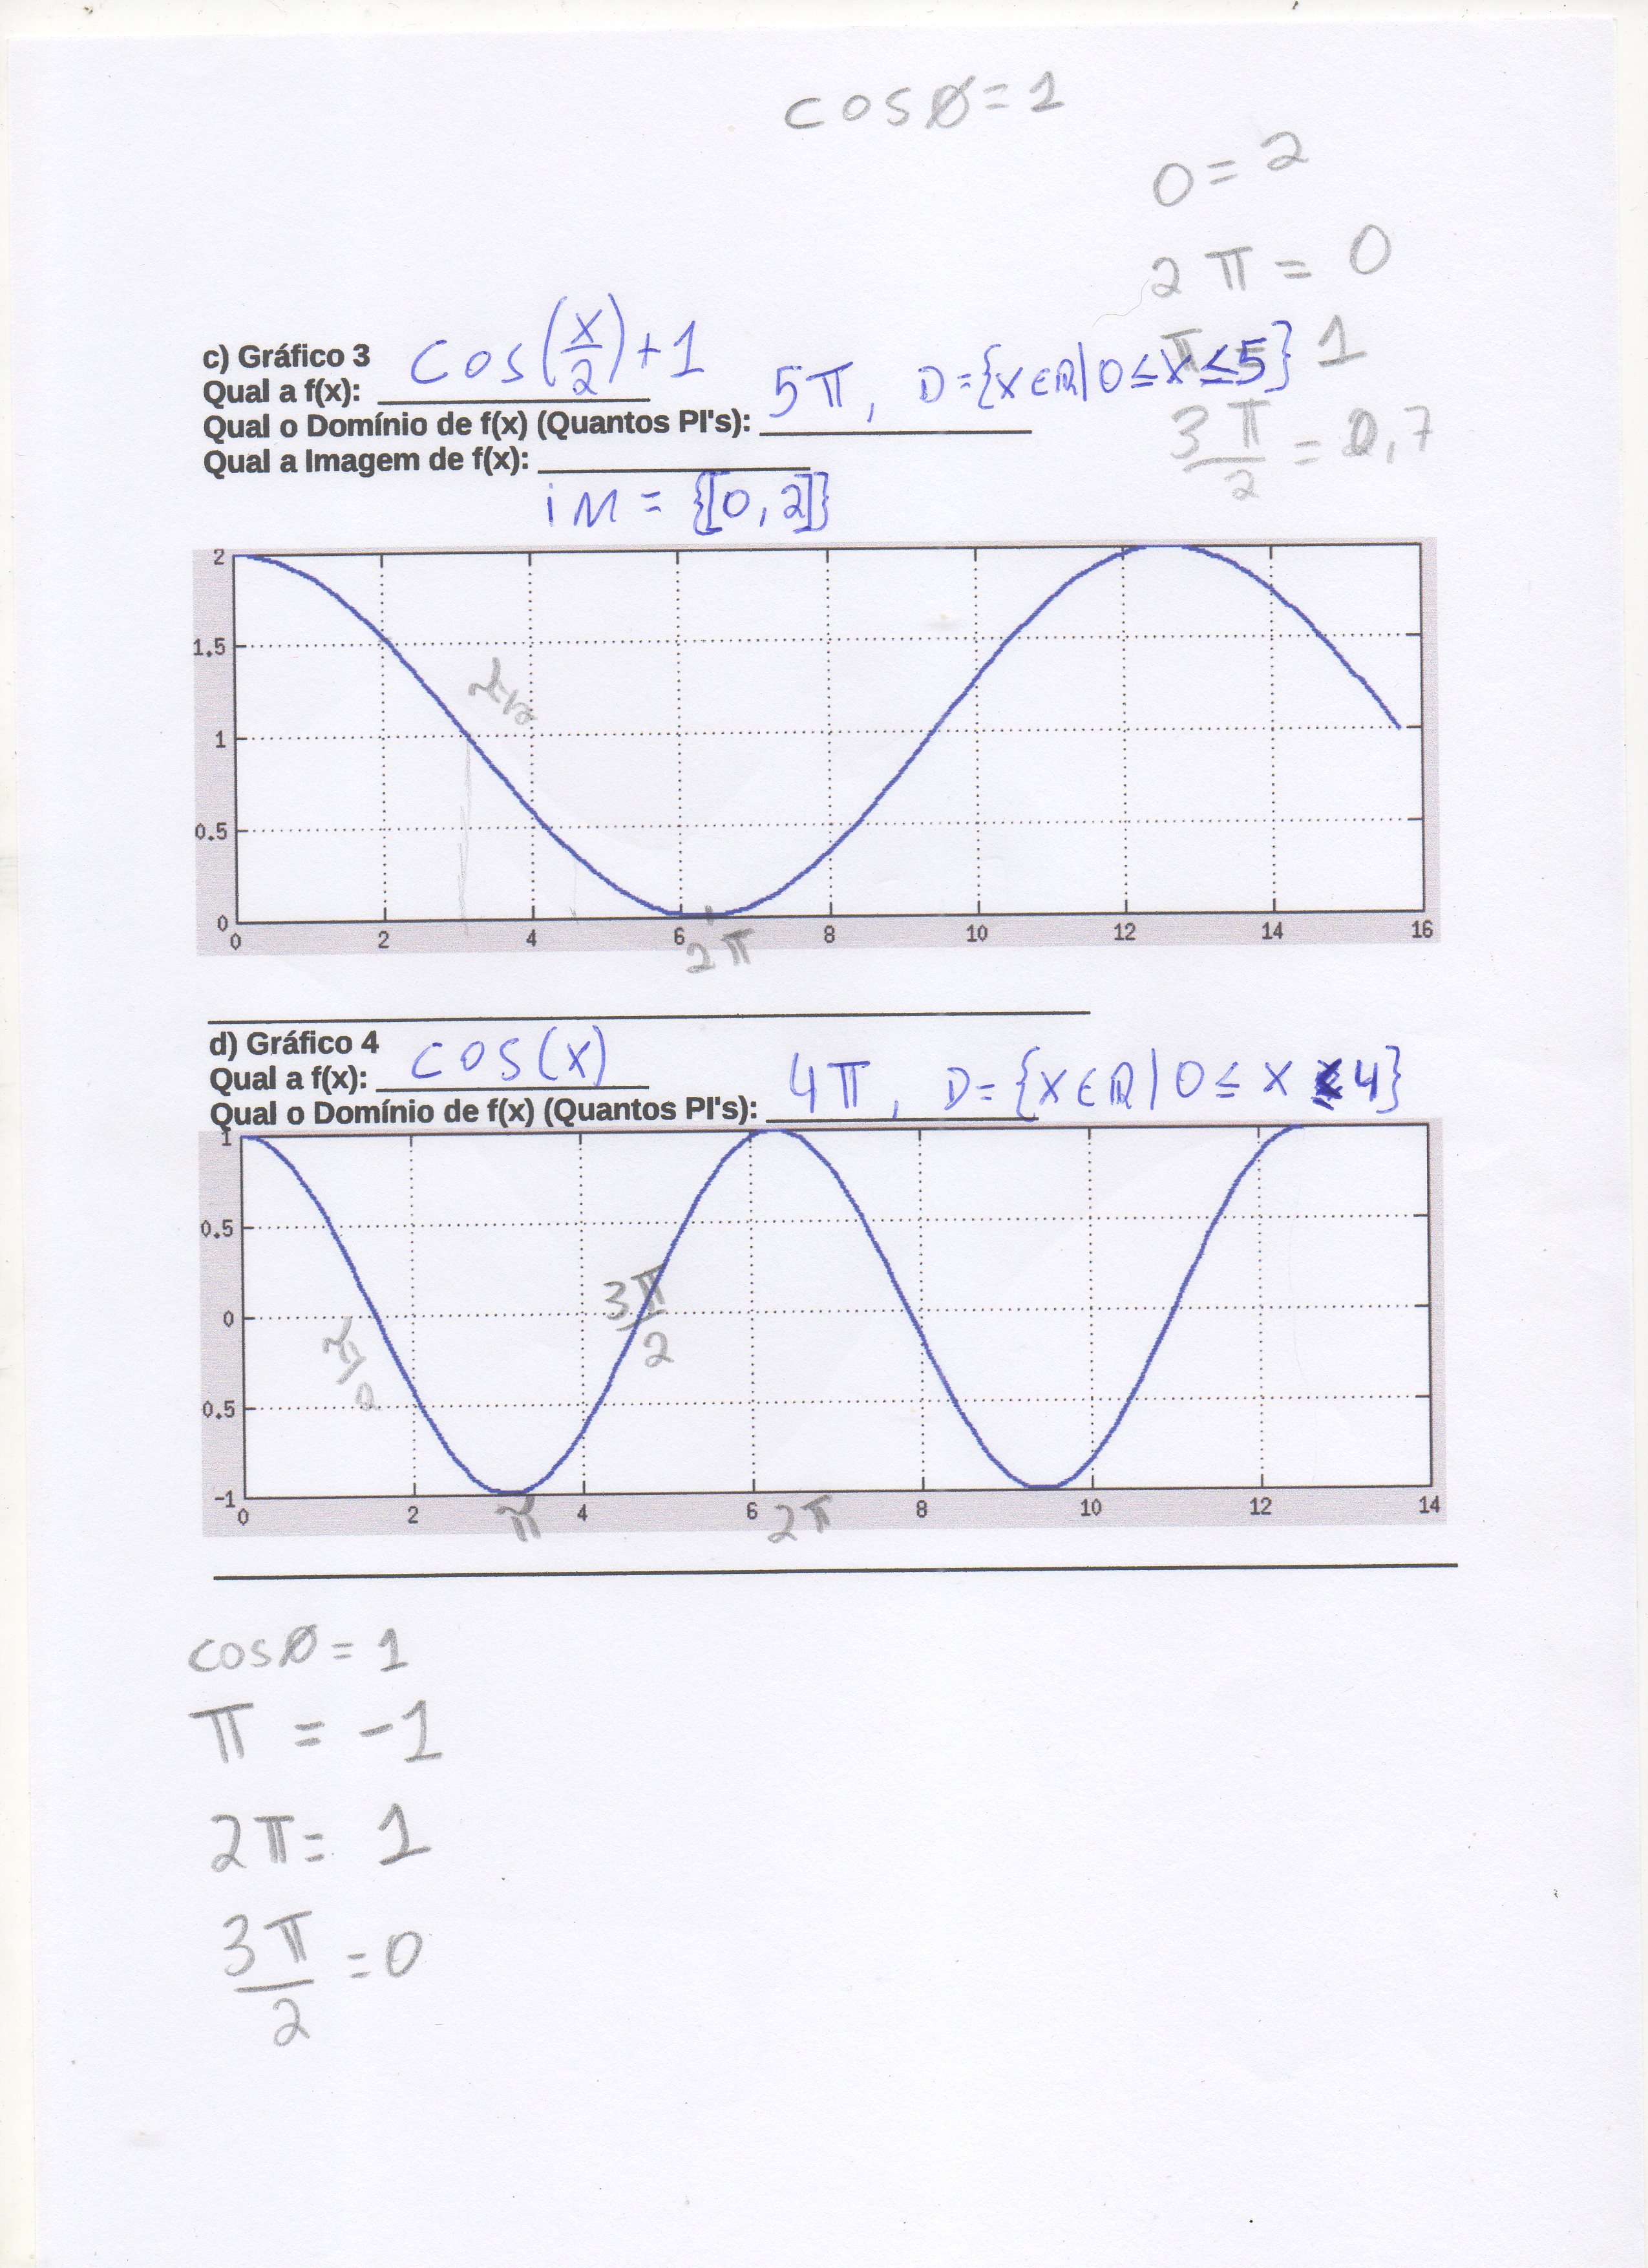 cos Ø = 1
0 = 2
2π = 0
π = 1
3π/2 = 0,7
c) Gráfico 3
Qual a f(x): cos(x/2)+1
Qual o Domínio de f(x) (Quantos PI's): 5π, D={x∈R|0≤x≤5}
Qual a Imagem de f(x):
im = {[0,2]}
2
1.5
1
0.5
0
0 2 4 6 8 10 12 14 16
2π
d) Gráfico 4
Qual a f(x): cos(x)
Qual o Domínio de f(x) (Quantos PI's): 4π, D={x∈R|0≤x≤4}
1
0.5
3π/2
0
0.5
-1
0 2 4 6 8 10 12 14
π 2π
cosØ = 1
π = -1
2π = 1
3π/2 = 0